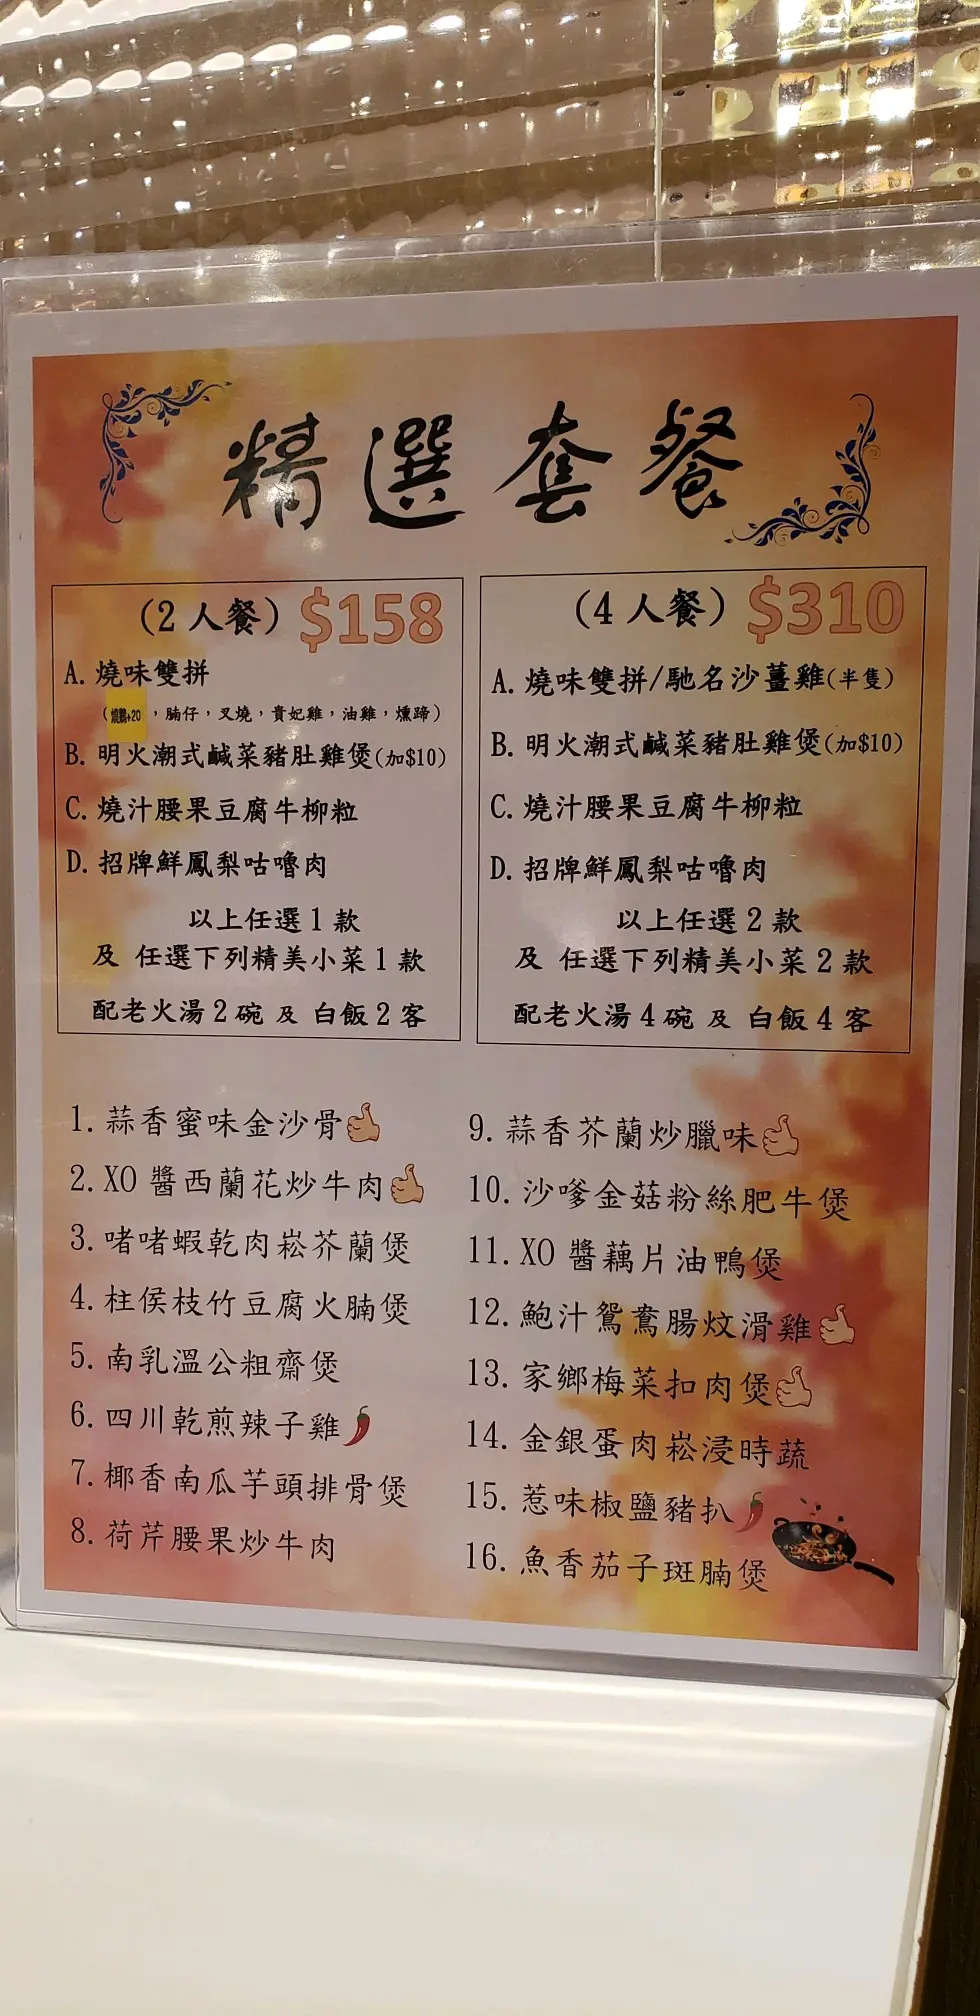 精選套餐
(2人餐) $158
A. 燒味雙拼
(燒鵝+20，腩仔，叉燒，貴妃雞，油雞，燻蹄)
B. 明火潮式鹹菜豬肚雞煲(加$10)
C. 燒汁腰果豆腐牛柳粒
D. 招牌鮮鳳梨咕嚕肉
以上任選1款
及 任選下列精美小菜1款
配老火湯2碗 及 白飯2客
(4人餐) $310
A. 燒味雙拼/馳名沙薑雞(半隻)
B. 明火潮式鹹菜豬肚雞煲(加$10)
C. 燒汁腰果豆腐牛柳粒
D. 招牌鮮鳳梨咕嚕肉
以上任選2款
及 任選下列精美小菜2款
配老火湯4碗 及 白飯4客
1. 蒜香蜜味金沙骨
2. XO醬西蘭花炒牛肉
3. 啫啫蝦乾肉崧芥蘭煲
4. 柱侯枝竹豆腐火腩煲
5. 南乳溫公粗齋煲
6. 四川乾煎辣子雞
7. 椰香南瓜芋頭排骨煲
8. 荷芹腰果炒牛肉
9. 蒜香芥蘭炒臘味
10. 沙嗲金菇粉絲肥牛煲
11. XO醬藕片油鴨煲
12. 鮑汁鴛鴦腸炆滑雞
13. 家鄉梅菜扣肉煲
14. 金銀蛋肉崧浸時蔬
15. 惹味椒鹽豬扒
16. 魚香茄子斑腩煲